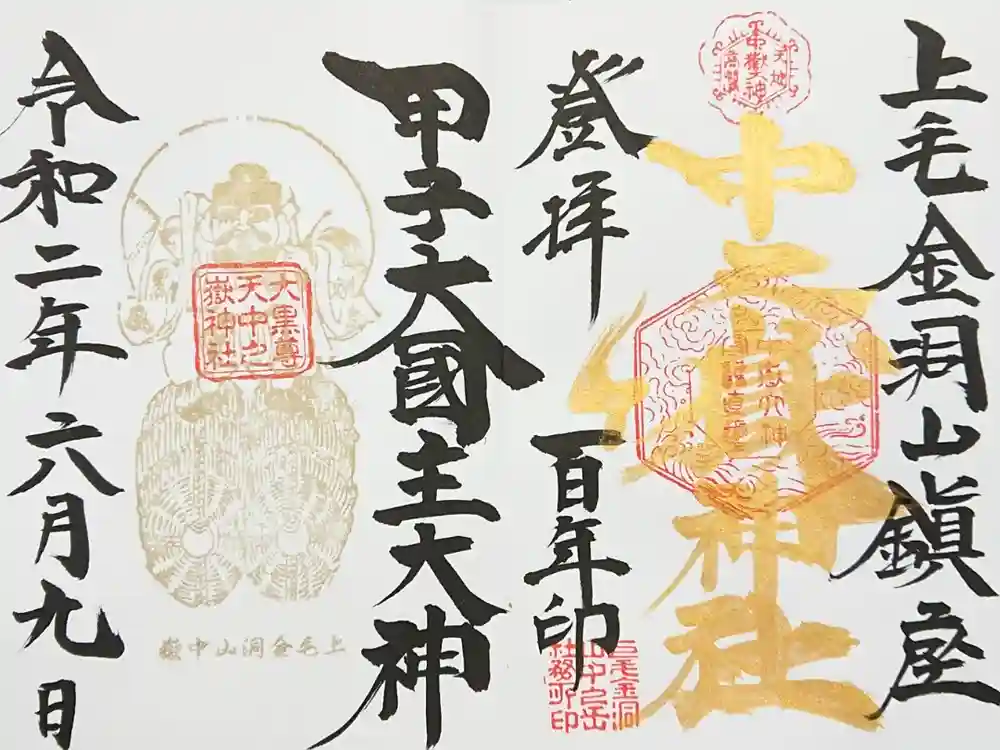 上毛金洞山鎮座
中之嶽神社
登拝
百年印
甲子大國主大神
令和二年六月九日
大黒尊
天中之
嶽神社
上毛金洞
山中之岳
社務所印
上毛金洞山中嶽